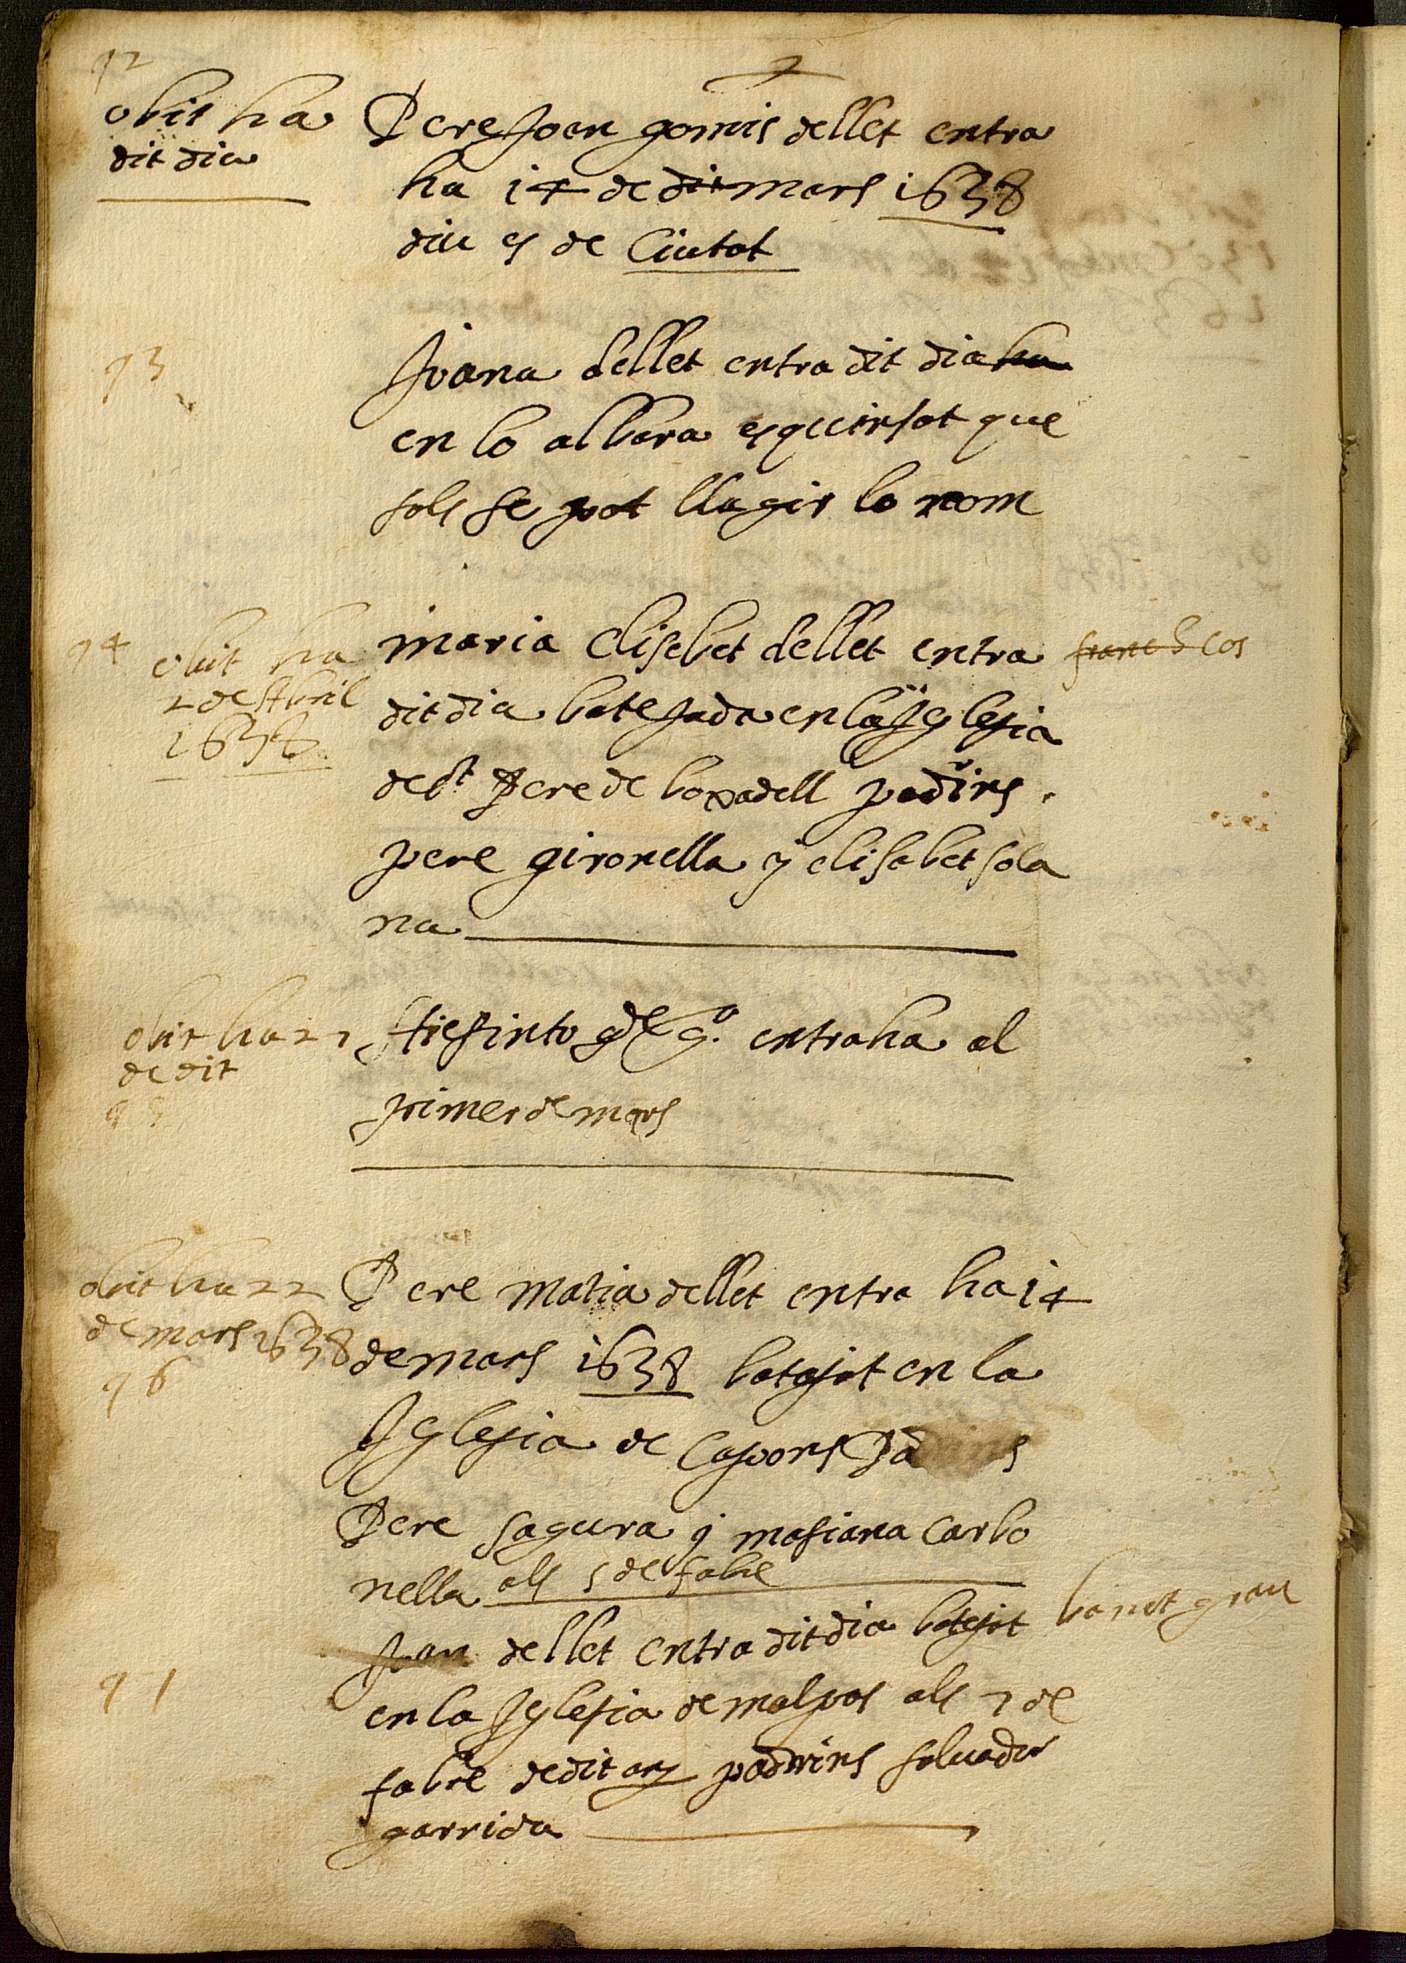 92
obit ha
dit dia
Pere Joan gomis dellet entra
ha 14 de dit mars 1638
diu es de Ciutat
93
Joana dellet entra dit dia ha
en lo albara esquinsat que
sols se pot llagir lo nom
94
obit ha
2 de Abril
1638
maria Elisebet dellet entra
dit dia batejada en la Iglesia
de st Pere de boxadell padrins
pere gironella y elisabet sola
na
cos
obit ha 27
de dit
95
entra ha al
primer de mars
obit ha 22
de mars 1638
96
Pere Matia dellet entra ha 14
de mars 1638 batejat en la
Iglesia de Capons
Pere sagura y mariana Carbo
nella als 5 de fabre
97
Joan dellet entra dit dia batejat
en la Iglesia de malpas als 7 de
fabre de dit any padrins salvador
garrida
banet grau